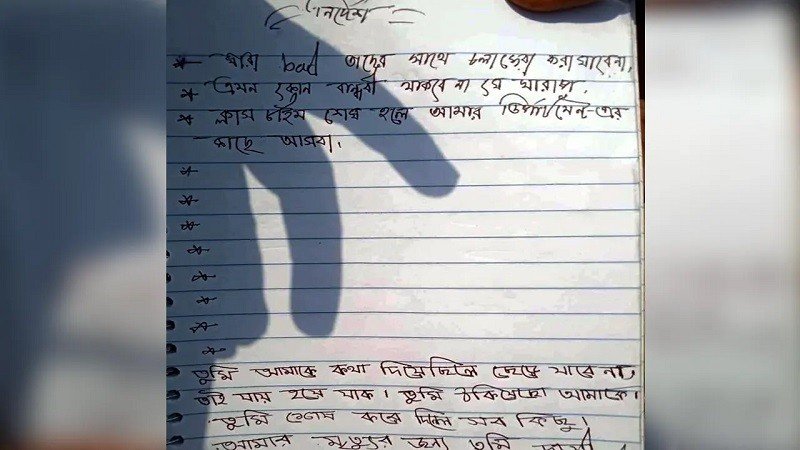 নির্দেশ
* যারা bad তাদের সাথে চলাফেরা করা যাবেনা,
* এমন কোন বান্ধবী থাকবে না যে খারাপ,
* ক্লাস টাইম শেষ হলে আমার ডিপার্টমেন্ট-এর
কাছে আসবা।
*
*
*
*
*
*
*
*
তুমি আমাকে কথা দিয়েছিলে ছেড়ে যাবে না,
যাই হয়ে যাক। তুমি ঠকিয়েছো আমাকে।
তুমি শেষ করে দিলে সব কিছু।
আমার মৃত্যুর জন্য তুমি দায়ী